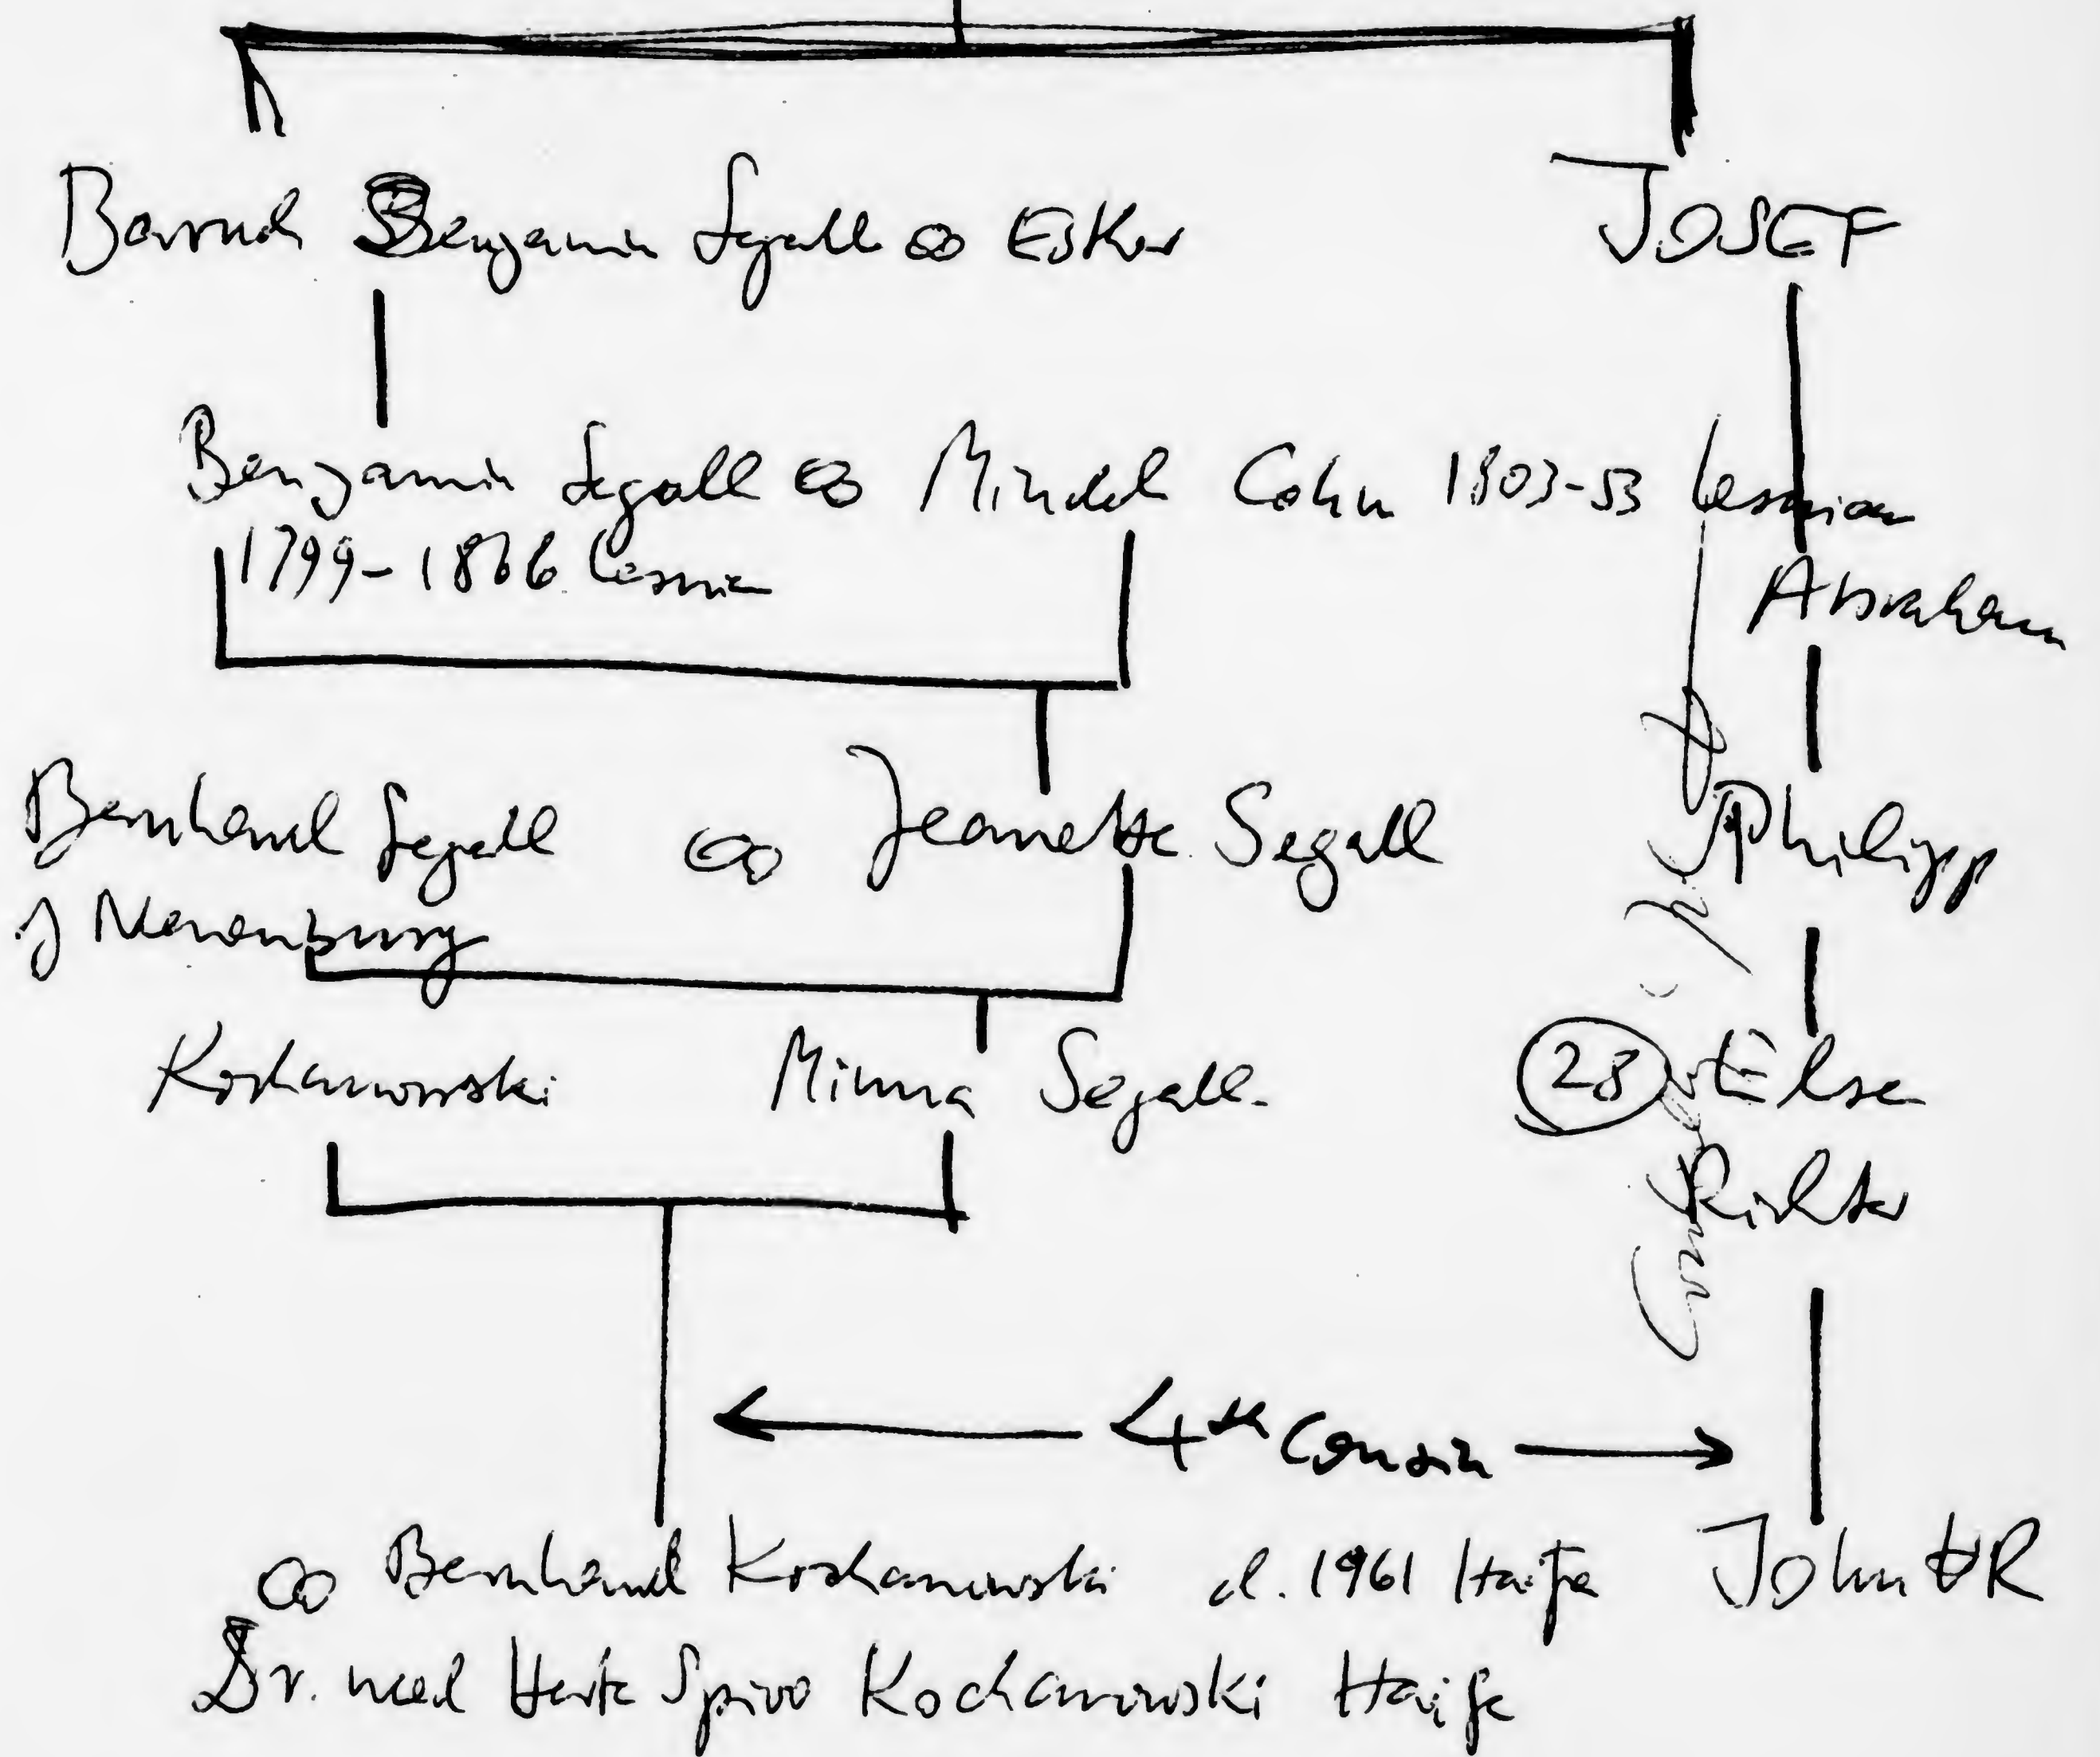 Baruch Benjamin Segall ∞ Esther
JOSEF
Benjamin Segall ∞ Mindel Cohn 1803-53 Lessnian
1799-1866 Lessnian
Abraham
Bernhard Segall ∞ Jeanette Segall
Philipp
Neuenburg
Kochanowski Minna Segall
28 Else
Richter
← 4th Cousin →
∞ Bernhard Kochanowski d. 1961 Haifa
John HR
Dr. med Herta Spiro Kochanowski Haifa